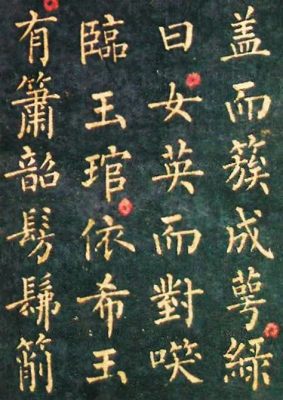 盖而簇成萼綠
曰女英而對㗛
臨玉琯依希玉
有簫韶髣髴箾